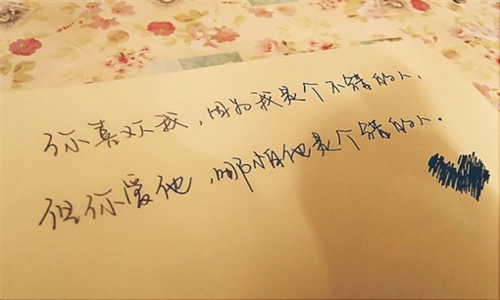 你喜欢我，因为我是个不错的人．
但你爱他，哪怕他是个错的人．